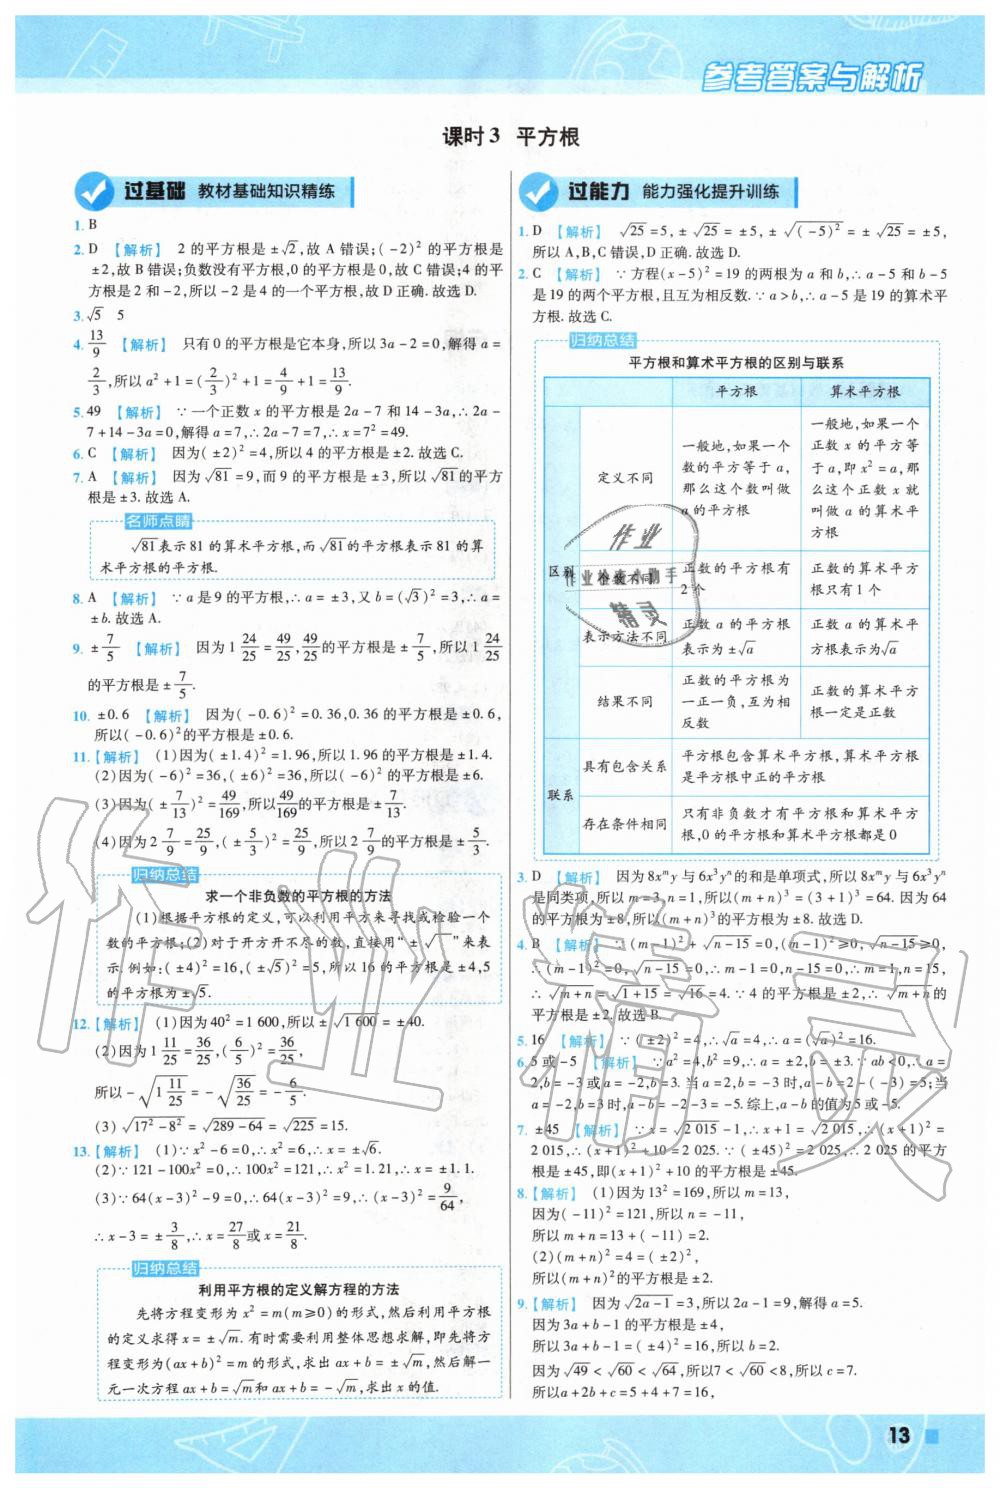 参考答案与解析
课时 3 平方根
过基础 教材基础知识精练
1. B
2. D 【解析】 2 的平方根是 ±√2,故 A 错误;(-2)² 的平方根是
±2,故 B 错误;负数没有平方根,0 的平方根是 0,故 C 错误;4 的平
方根是 2 和 -2,所以 -2 是 4 的一个平方根,故 D 正确.故选 D.
3. √5 5
4. 13/9 【解析】 只有 0 的平方根是它本身,所以 3a-2=0,解得 a=
2/3,所以 a²+1=(2/3)²+1=4/9+1=13/9.
5. 49 【解析】 ∵一个正数 x 的平方根是 2a-7 和 14-3a,∴2a-
7+14-3a=0,解得 a=7,∴2a-7=7,∴x=7²=49.
6. C 【解析】 因为(±2)²=4,所以 4 的平方根是 ±2.故选 C.
7. A 【解析】 因为√81=9,而 9 的平方根是 ±3,所以√81的平方
根是 ±3.故选 A.
名师点睛
√81表示 81 的算术平方根,而√81的平方根表示 81 的算
术平方根的平方根.
8. A 【解析】 ∵a 是 9 的平方根,∴a=±3,又 b=(√3)²=3,∴a=
±b.故选 A.
9. ±7/5 【解析】 因为 1 24/25=49/25,49/25的平方根是 ±7/5,所以 1 24/25
的平方根是 ±7/5.
10. ±0.6 【解析】 因为(-0.6)²=0.36,0.36 的平方根是 ±0.6,
所以(-0.6)²的平方根是 ±0.6.
11.【解析】 (1)因为(±1.4)²=1.96,所以 1.96 的平方根是 ±1.4.
(2)因为(-6)²=36,(±6)²=36,所以(-6)²的平方根是 ±6.
(3)因为(±7/13)²=49/169,所以49/169的平方根是 ±7/13.
(4)因为 2 7/9=25/9,(±5/3)²=25/9,所以 2 7/9的平方根是 ±5/3.
归纳总结
求一个非负数的平方根的方法
(1)根据平方根的定义,可以利用平方来寻找或检验一个
数的平方根;(2)对于开方开不尽的数,直接用“±√ ”来表
示.例如:(±4)²=16,(±√5)²=5,所以 16 的平方根是 ±4,5
的平方根为 ±√5.
12.【解析】 (1)因为 40²=1 600,所以 ±√1 600=±40.
(2)因为 1 11/25=36/25,(6/5)²=36/25,
所以 -√1 11/25=-√36/25=-6/5.
(3)√17²-8²=√289-64=√225=15.
13.【解析】 (1)∵x²-6=0,∴x²=6,∴x=±√6.
(2)∵121-100x²=0,∴100x²=121,∴x²=1.21,∴x=±1.1.
(3)∵64(x-3)²-9=0,∴64(x-3)²=9,∴(x-3)²=9/64,
∴x-3=±3/8,∴x=27/8或 x=21/8.
归纳总结
利用平方根的定义解方程的方法
先将方程变形为 x²=m(m≥0)的形式,然后利用平方根
的定义求得 x=±√m.有时需要利用整体思想求解,即先将方
程变形为(ax+b)²=m 的形式,求出 ax+b=±√m,然后解一
元一次方程 ax+b=√m和 ax+b=-√m,求出 x 的值.
过能力 能力强化提升训练
1. D 【解析】 √25=5,±√25=±5,±√(-5)²=±√25=±5,
所以 A,B,C 错误,D 正确.故选 D.
2. C 【解析】 ∵方程(x-5)²=19 的两根为 a 和 b,∴a-5 和 b-5
是 19 的两个平方根,且互为相反数.∵a>b,∴a-5 是 19 的算术平
方根.故选 C.
归纳总结
平方根和算术平方根的区别与联系
平方根 算术平方根
区别
定义不同
一般地,如果一个
数的平方等于 a,
那么这个数叫做
a 的平方根
一般地,如果一个
正数 x 的平方等
于 a,即 x²=a,那
么这个正数 x 就
叫做 a 的算术平
方根
个数不同
正数的平方根有
2 个
正数的算术平方
根只有 1 个
表示方法不同
正数 a 的平方根
表示为 ±√a
正数 a 的算术平
方根表示为√a
结果不同
正数的平方根为
一正一负,互为相
反数
正数的算术平方
根一定是正数
联系
具有包含关系
平方根包含算术平方根,算术平方根
是平方根中正的平方根
存在条件相同
只有非负数才有平方根和算术平方
根,0 的平方根和算术平方根都是 0
3. D 【解析】 因为 8xᵐy 与 6x³yⁿ的和是单项式,所以 8xᵐy 与 6x³yⁿ
是同类项,所以 m=3,n=1,所以(m+n)³=(3+1)³=64.因为 64
的平方根为 ±8,所以(m+n)³的平方根为 ±8.故选 D.
4. B 【解析】 ∵(m-1)²+√n-15=0,(m-1)²≥0,√n-15≥0,
∴(m-1)²=0,√n-15=0,∴m-1=0,n-15=0,∴m=1,n=15,
∴√m+n=√1+15=√16=4.∵4 的平方根是 ±2,∴√m+n的
平方根是 ±2.故选 B.
5. 16 【解析】 ∵(±2)²=4,∴√a=4,∴a=(√a)²=16.
6. 5 或 -5 【解析】 ∵a²=4,b²=9,∴a=±2,b=±3.∵ab<0,∴a=
2,b=-3 或 a=-2,b=3.当 a=2,b=-3 时,a-b=2-(-3)=5;当
a=-2,b=3 时,a-b=-2-3=-5.综上,a-b 的值为 5 或 -5.
7. ±45 【解析】 ∵x=√2 015-1,∴x+1=√2 015,∴(x+1)²=
2 015,∴(x+1)²+10=2 025.∵(±45)²=2 025,∴2 025 的平方
根是 ±45,即(x+1)²+10 的平方根是 ±45.
8.【解析】 (1)因为 13²=169,所以 m=13,
因为(-11)²=121,所以 n=-11,
所以 m+n=13+(-11)=2.
(2)(m+n)²=4=(±2)²,
所以(m+n)²的平方根是 ±2.
9.【解析】 因为√2a-1=3,所以 2a-1=9,解得 a=5.
因为 3a+b-1 的平方根是 ±4,
所以 3a+b-1=(±4)²=16,所以 b=2.
因为√49<√60<√64,所以7<√60<8,所以 c=7.
所以a+2b+c=5+4+7=16,
13
作业
作业检查小助手
精灵
作业精灵